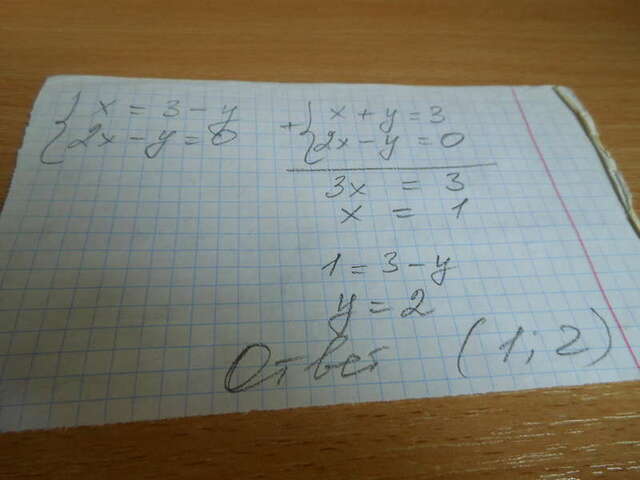 { x = 3 - y
2x - y = 0
+ { x + y = 3
2x - y = 0
3x = 3
x = 1
1 = 3 - y
y = 2
Ответ (1; 2)